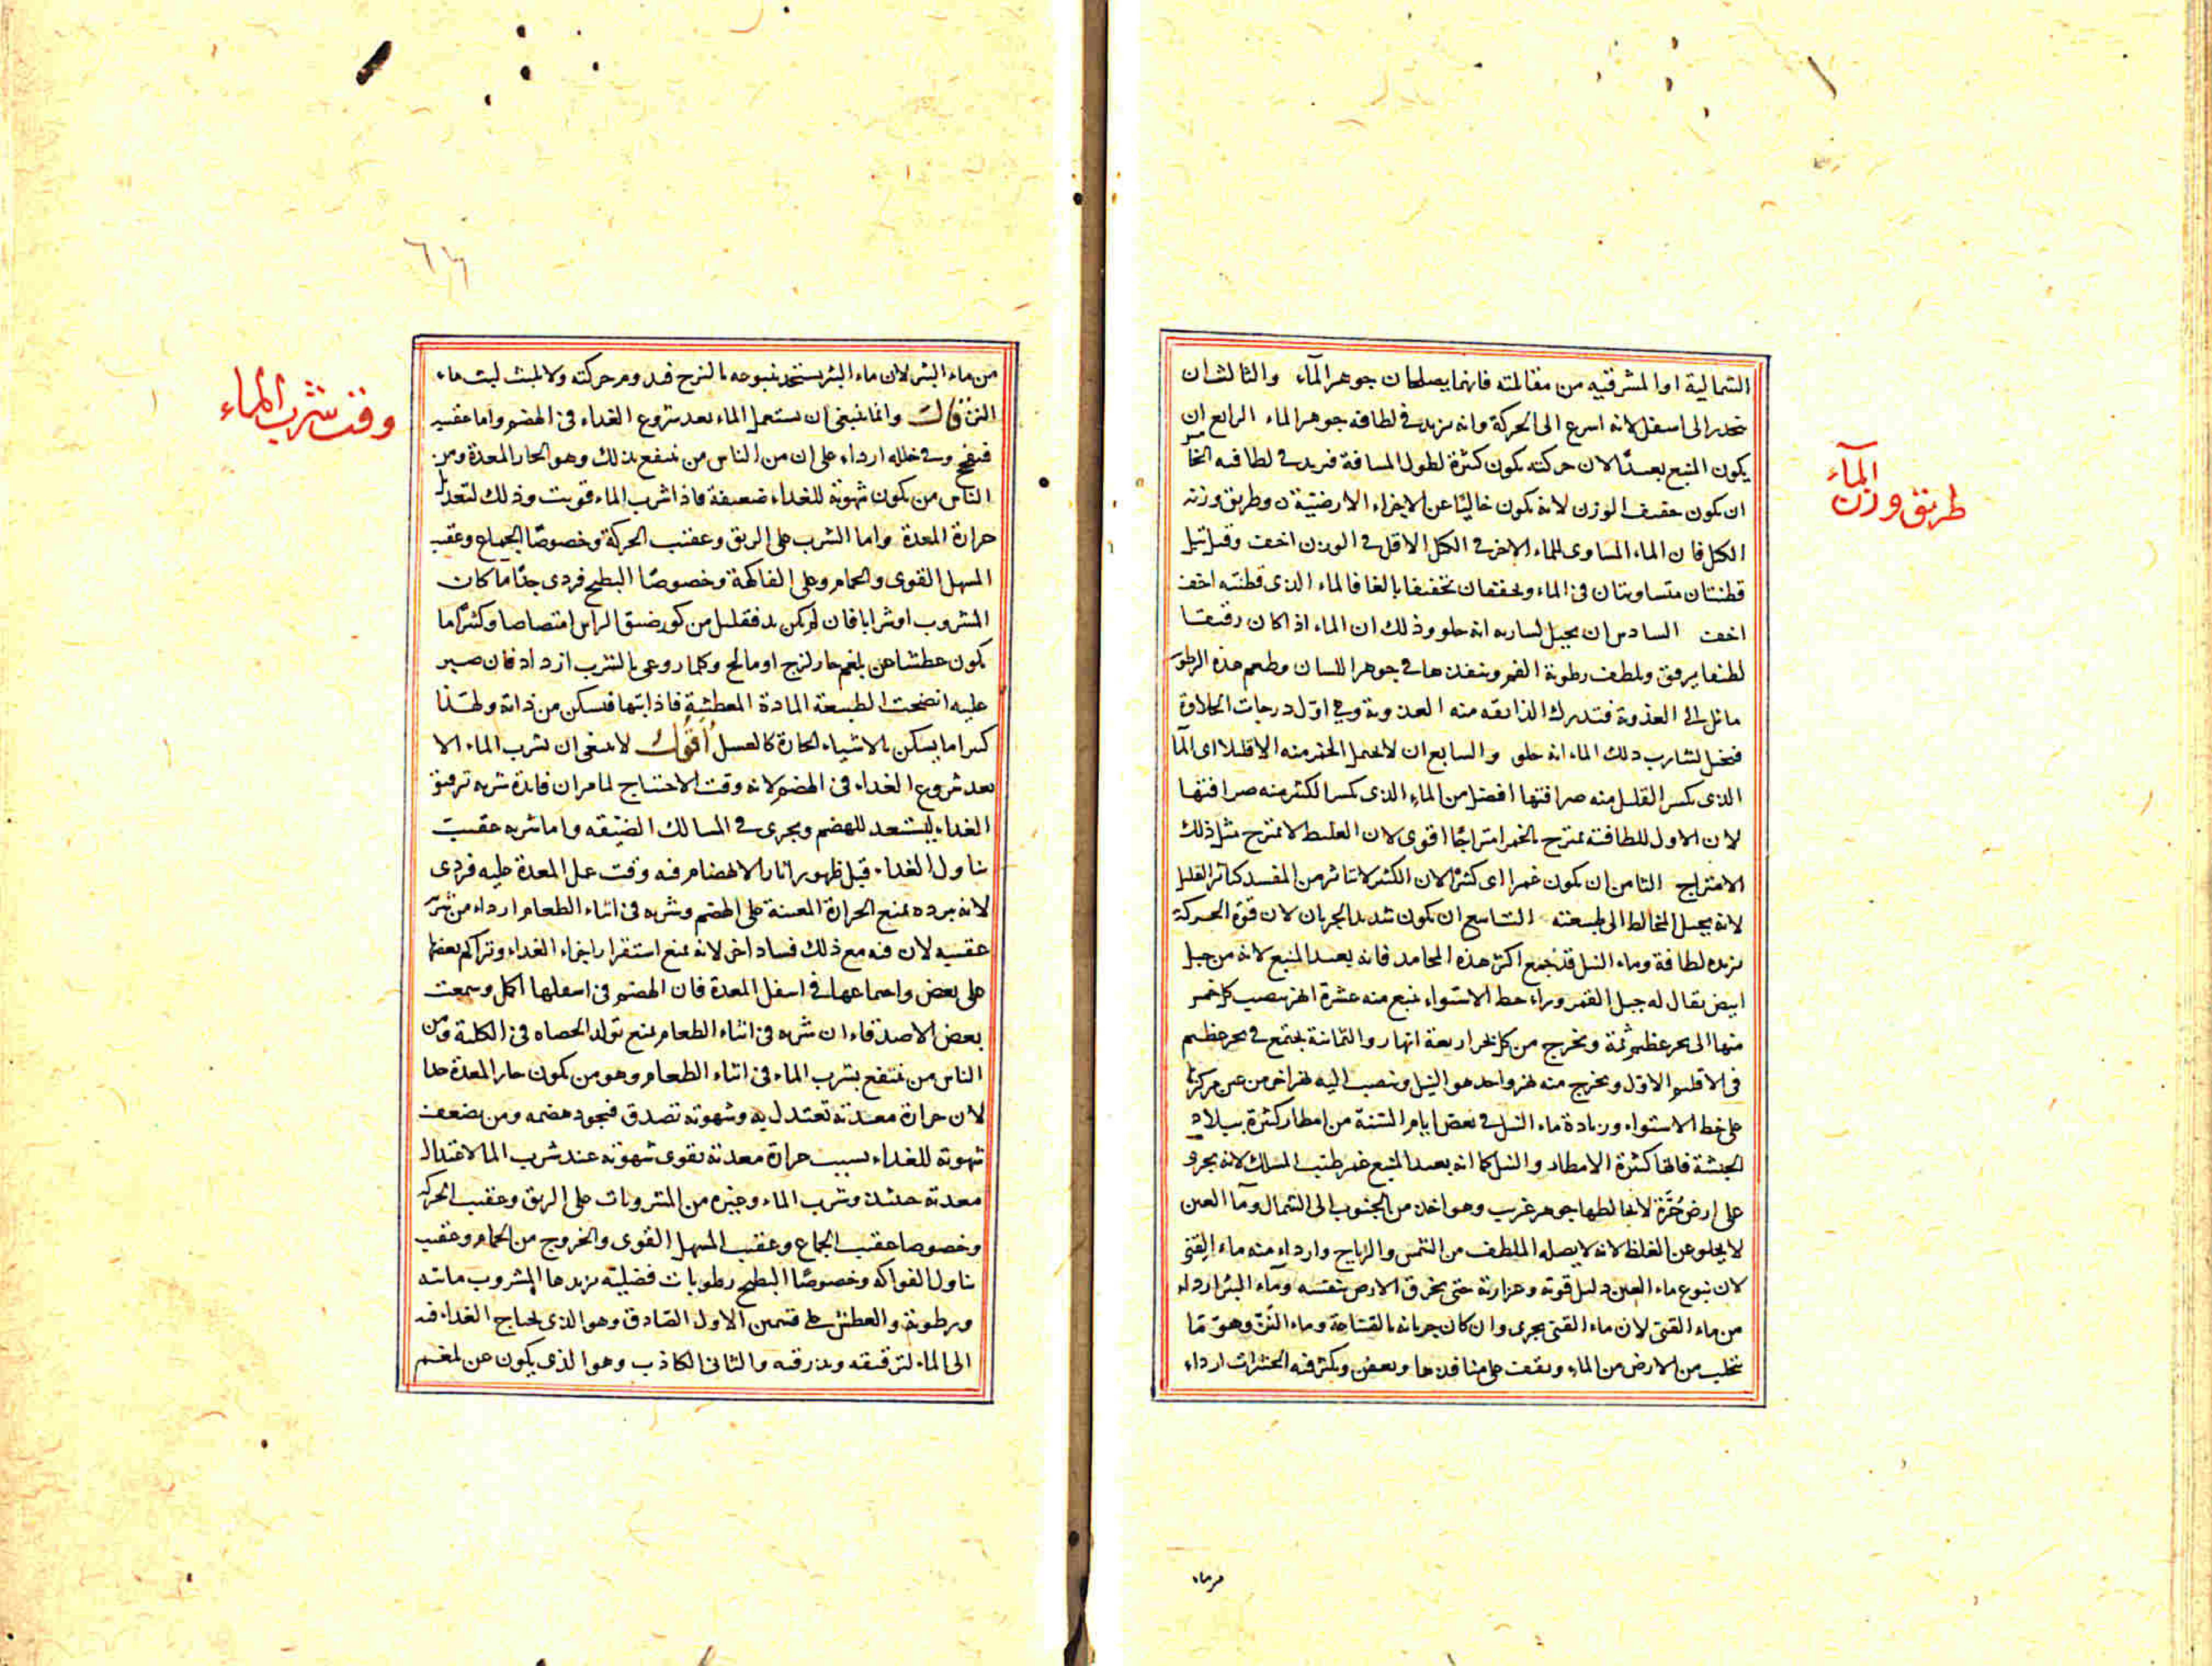 الشمالية او المشرقية من مقابلته فانهما يصلحان جوهر المآء والثالث ان
ينحدر الى اسفل لانه اسرع الى الحركة وانه يزيد في لطافة جوهر الماء الرابع ان
يكون المنبع بعيدًا لان حركته يكون كثيرة لطول المسافة فيزيد في لطافته الخامس
ان يكون خفيف الوزن لانه يكون خاليًا عن الاجزاء الارضيّة وطريق وزنه
الكيل فان الماء المساوى للماء الاخر في الكيل الاقل في الوزن اخف وقيل تبل
قطنتان متساويتان في الماء ويجففان تجفيفا بالغا فالماء الذى قطنته اخف
اخف السادس ان يخيل لشاربه انه حلو وذلك ان الماء اذا كان رقيقا
لطيفا يرقق ويلطف رطوبة الفم وينفذها في جوهر اللسان وطعم هذه الرطوبة
مائل الى العذوبة فتدرك الذائقه منه العذوبة وهي اول درجات الحلاوة
فيخيل لشارب ذلك الماء انه حلو والسابع ان لا يحتمل الخمر منه الا قليلا اى المآء
الذى يكسر القليل منه صرافتها افضل من الماء الذى يكسر الكثير منه صرافتها
لان الاول للطافته يمتزج بالخمر امتزاجًا اقوى لان الغليظ لا يمتزج مثل ذلك
الامتزاج الثامن ان يكون غمرا اى كثيرًا لان الكثير لا يتاثر من المفسد كتأثر القليل
لانه يحيل المخالط الى طبيعته التاسع ان يكون شديد الجريان لان قوة الحركة
يزيده لطافة وماء النيل قد جمع اكثر هذه المحامد فانه بعيد المنبع لانه من جبل
ابيض يقال له جبل القمر وراء خط الاستواء ينبع منه عشرة انهر يصيب كل خمس
منها الى بحر عظيم ثمة ويخرج من كل بحر اربعة انهار والثمانية يجتمع في بحر عظيم
في الاقليم الاول ويخرج منه نهر واحد هو النيل وينصب اليه نهر اخر من عين مركزها
على خط الاستواء وزيادة ماء النيل في بعض ايام السنة من امطار كثيرة ببلاد
الحبشة فانها كثيرة الامطار والنيل كما انه بعيد المنبع غمر طيب المسلك لانه يجرى
على ارض حُرّة لا يخالطها جوهر غريب وهو اخذ من الجنوب الى الشمال وماء العين
لا يخلو عن الغلظ لانه لا يصله الملطف من الشمس والرياح وارداء منه ماء القنى
لان نبوع ماء العين دليل قوته وغزارته حتى يخرق الارض بنفسه وماء البئر اردء
من ماء القنى لان ماء القنى يجرى وان كان جريانه بالقناة وماء النزّ وهو ما
يتحلب من الارض من الماء ويقف على منافذها ويعفن ويكثر فيه الحشرات ارداء
من ماء
طريق وزن المآء
من ماء البئر لان ماء البئر يستجد نبوعه بالنزح فيدوم حركته ولا يلبث لبث ماء
النز قال وانما ينبغى ان يستعمل الماء بعد شروع الغذاء في الهضم واما عقيبه
فيفجج وفي خلله ارداء على ان من الناس من ينتفع بذلك وهو الحار المعدة ومن
الناس من يكون شهوته للغذاء ضعيفة فاذا شرب الماء قويت وذلك لتعديل
حرارة المعدة واما الشرب على الريق وعقيب الحركة وخصوصًا الجماع وعقيب
المسهل القوى والحمام وعلى الفاكهة وخصوصًا البطيخ فردى جدًا ماء كان
المشروب او شرابا فان لم يكن بد فقليل من كوز ضيق الراس امتصاصا وكثيرًا ما
يكون عطشا عن بلغم حار لزج او مالح وكلما روعى بالشرب ازداد فان صبر
عليه انضجت الطبيعة المادة المعطشة فاذابتها فيسكن من ذاته ولهذا
كثيرا ما يسكن بالاشياء الحارة كالعسل أقول لا ينبغى ان يشرب الماء الا
بعد شروع الغذاء في الهضم لانه وقت الاحتياج لما مر ان فائدة شربه ترقيق
الغذاء ليستعد للهضم ويجرى في المسالك الضيّقه واما شربه عقيب
تناول الغذاء قبل ظهور اثار الانهضام فيه وقت عمل المعدة عليه فردى
لانه ببرده يمنع الحرارة المعينة على الهضم وشربه في اثناء الطعام ارداء من شربه
عقيبه لان فيه مع ذلك فساد اخر لانه يمنع استقرار اجزاء الغذاء وتراكم بعضها
على بعض واجتماعها في اسفل المعدة فان الهضم في اسفلها اكمل وسمعت
بعض الاصدقاء ان شربه في اثناء الطعام يمنع تولد الحصاه في الكلية ومن
الناس من ينتفع بشرب الماء في اثناء الطعام وهو من يكون حار المعدة جدا
لان حرارة معدته تعتدل به وشهوته تصدق فيجود هضمه ومن يضعف
شهوته للغذاء بسبب حرارة معدته يقوى شهوته عند شرب الما لاعتدال
معدته حينئذ وشرب الماء وغيره من المشروبات على الريق وعقيب الحركة
وخصوصا عقيب الجماع وعقيب المسهل القوى والخروج من الحمام وعقيب
تناول الفواكه وخصوصًا البطيخ رطوبات فضلية يزيدها المشروب مائية
ورطوبة والعطش على قسمين الاول الصادق وهو الذى يحتاج الغذاء فيه
الى الماء لترقيقه وبذرقته والثانى الكاذب وهو الذى يكون عن بلغم
وقت شرب الماء